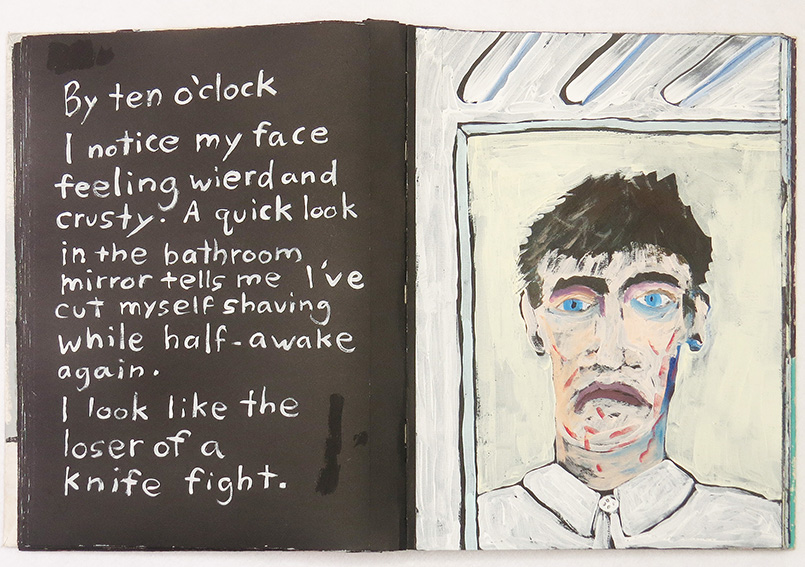 By ten o'clock
I notice my face
feeling wierd and
crusty. A quick look
in the bathroom
mirror tells me I've
cut myself shaving
while half-awake
again.
I look like the
loser of a
knife fight.